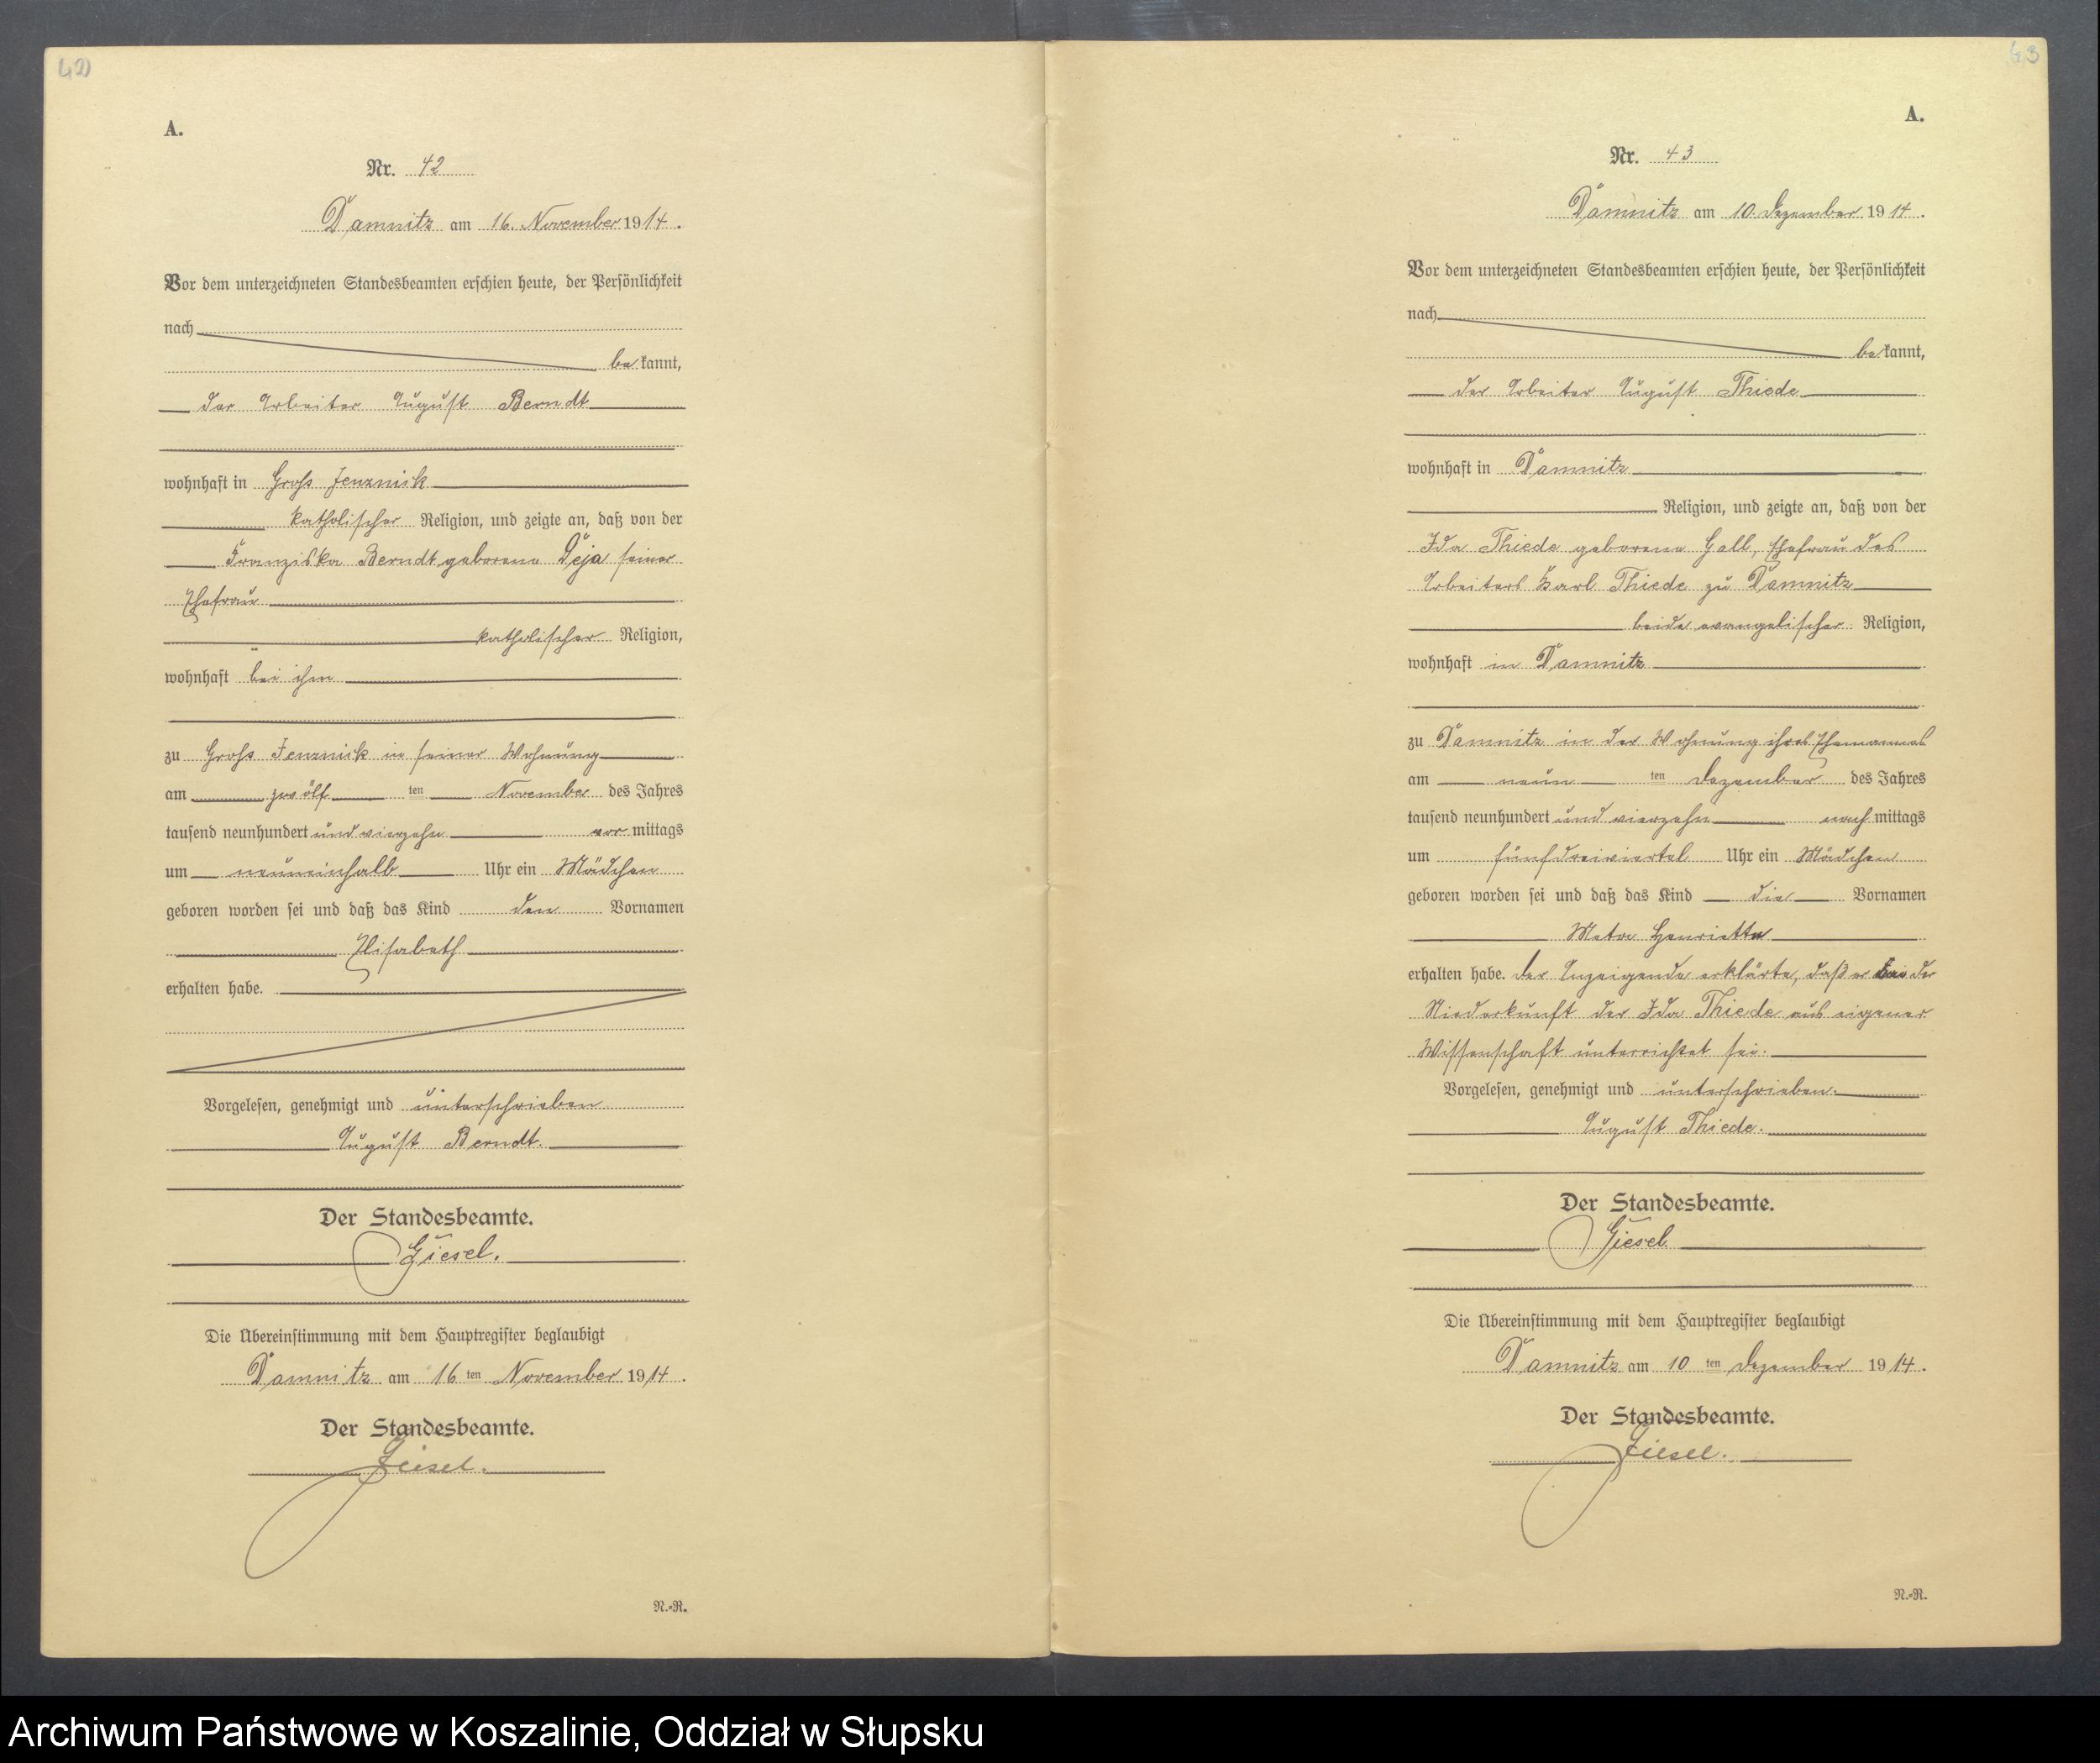 42
A.
Nr. 42
Damnitz am 16. November 1914.
Vor dem unterzeichneten Standesbeamten erschien heute, der Persönlichkeit
nach
bekannt,
der Arbeiter August Berndt
wohnhaft in Groß Jenznick
katholischer Religion, und zeigte an, daß von der
Franziska Berndt geborene Deja seiner
Ehefrau
katholischer Religion,
wohnhaft bei ihm
zu Groß Jenznick in seiner Wohnung
am zwölf ten November des Jahres
tausend neunhundert und vierzehn vor mittags
um neuneinhalb Uhr ein Mädchen
geboren worden sei und daß das Kind den Vornamen
Elisabeth
erhalten habe.
Vorgelesen, genehmigt und unterschrieben
August Berndt.
Der Standesbeamte.
Giesel.
Die Übereinstimmung mit dem Hauptregister beglaubigt
Damnitz am 16 ten November 1914.
Der Standesbeamte.
Giesel.
N.-R.
43
A.
Nr. 43
Damnitz am 10. Dezember 1914.
Vor dem unterzeichneten Standesbeamten erschien heute, der Persönlichkeit
nach
bekannt,
der Arbeiter August Thiede
wohnhaft in Damnitz
Religion, und zeigte an, daß von der
Ida Thiede geborene Gall, Ehefrau des
Arbeiters Karl Thiede zu Damnitz
beide evangelischer Religion,
wohnhaft in Damnitz
zu Damnitz in der Wohnung ihres Ehemannes
am neun ten Dezember des Jahres
tausend neunhundert und vierzehn nach mittags
um fünfdreiviertel Uhr ein Mädchen
geboren worden sei und daß das Kind die Vornamen
Meta Henriette
erhalten habe. Der Anzeigende erklärte, daß er bei der
Niederkunft der Ida Thiede aus eigener
Wissenschaft unterrichtet sei.
Vorgelesen, genehmigt und unterschrieben.
August Thiede.
Der Standesbeamte.
Giesel
Die Übereinstimmung mit dem Hauptregister beglaubigt
Damnitz am 10 ten Dezember 1914.
Der Standesbeamte.
Giesel.
N.-R.
Archiwum Państwowe w Koszalinie, Oddział w Słupsku